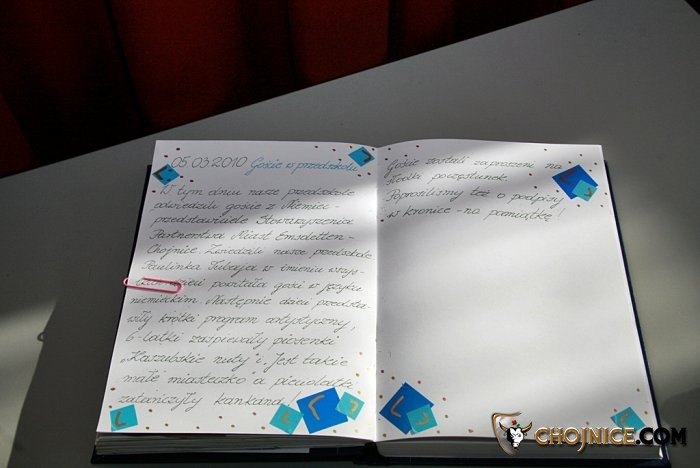 05.03.2010 Goście w przedszkolu
W tym dniu nasze przedszkole
odwiedzili goście z Niemiec -
przedstawiciele Stowarzyszenia
Partnerstwa Miast Emsdetten -
Chojnice. Zwiedzili nasze przedszkole.
Paulinka w imieniu wszys-
dzieci powitała gości w języku
niemieckim. Następnie dzieci przedsta-
wiły krótki program artystyczny,
6-latki zaśpiewały piosenki
„Kaszubskie nuty" i „Jest takie
małe miasteczko a pięciolatki
zatańczyły kankana!
Goście zostali zaproszeni na
słodki poczęstunek.
Poprosiliśmy też o podpisy
w kronice - na pamiątkę!
CHOJNICE.COM